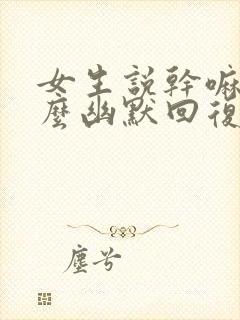 女生說幹嘛
麼幽默回復
塵兮